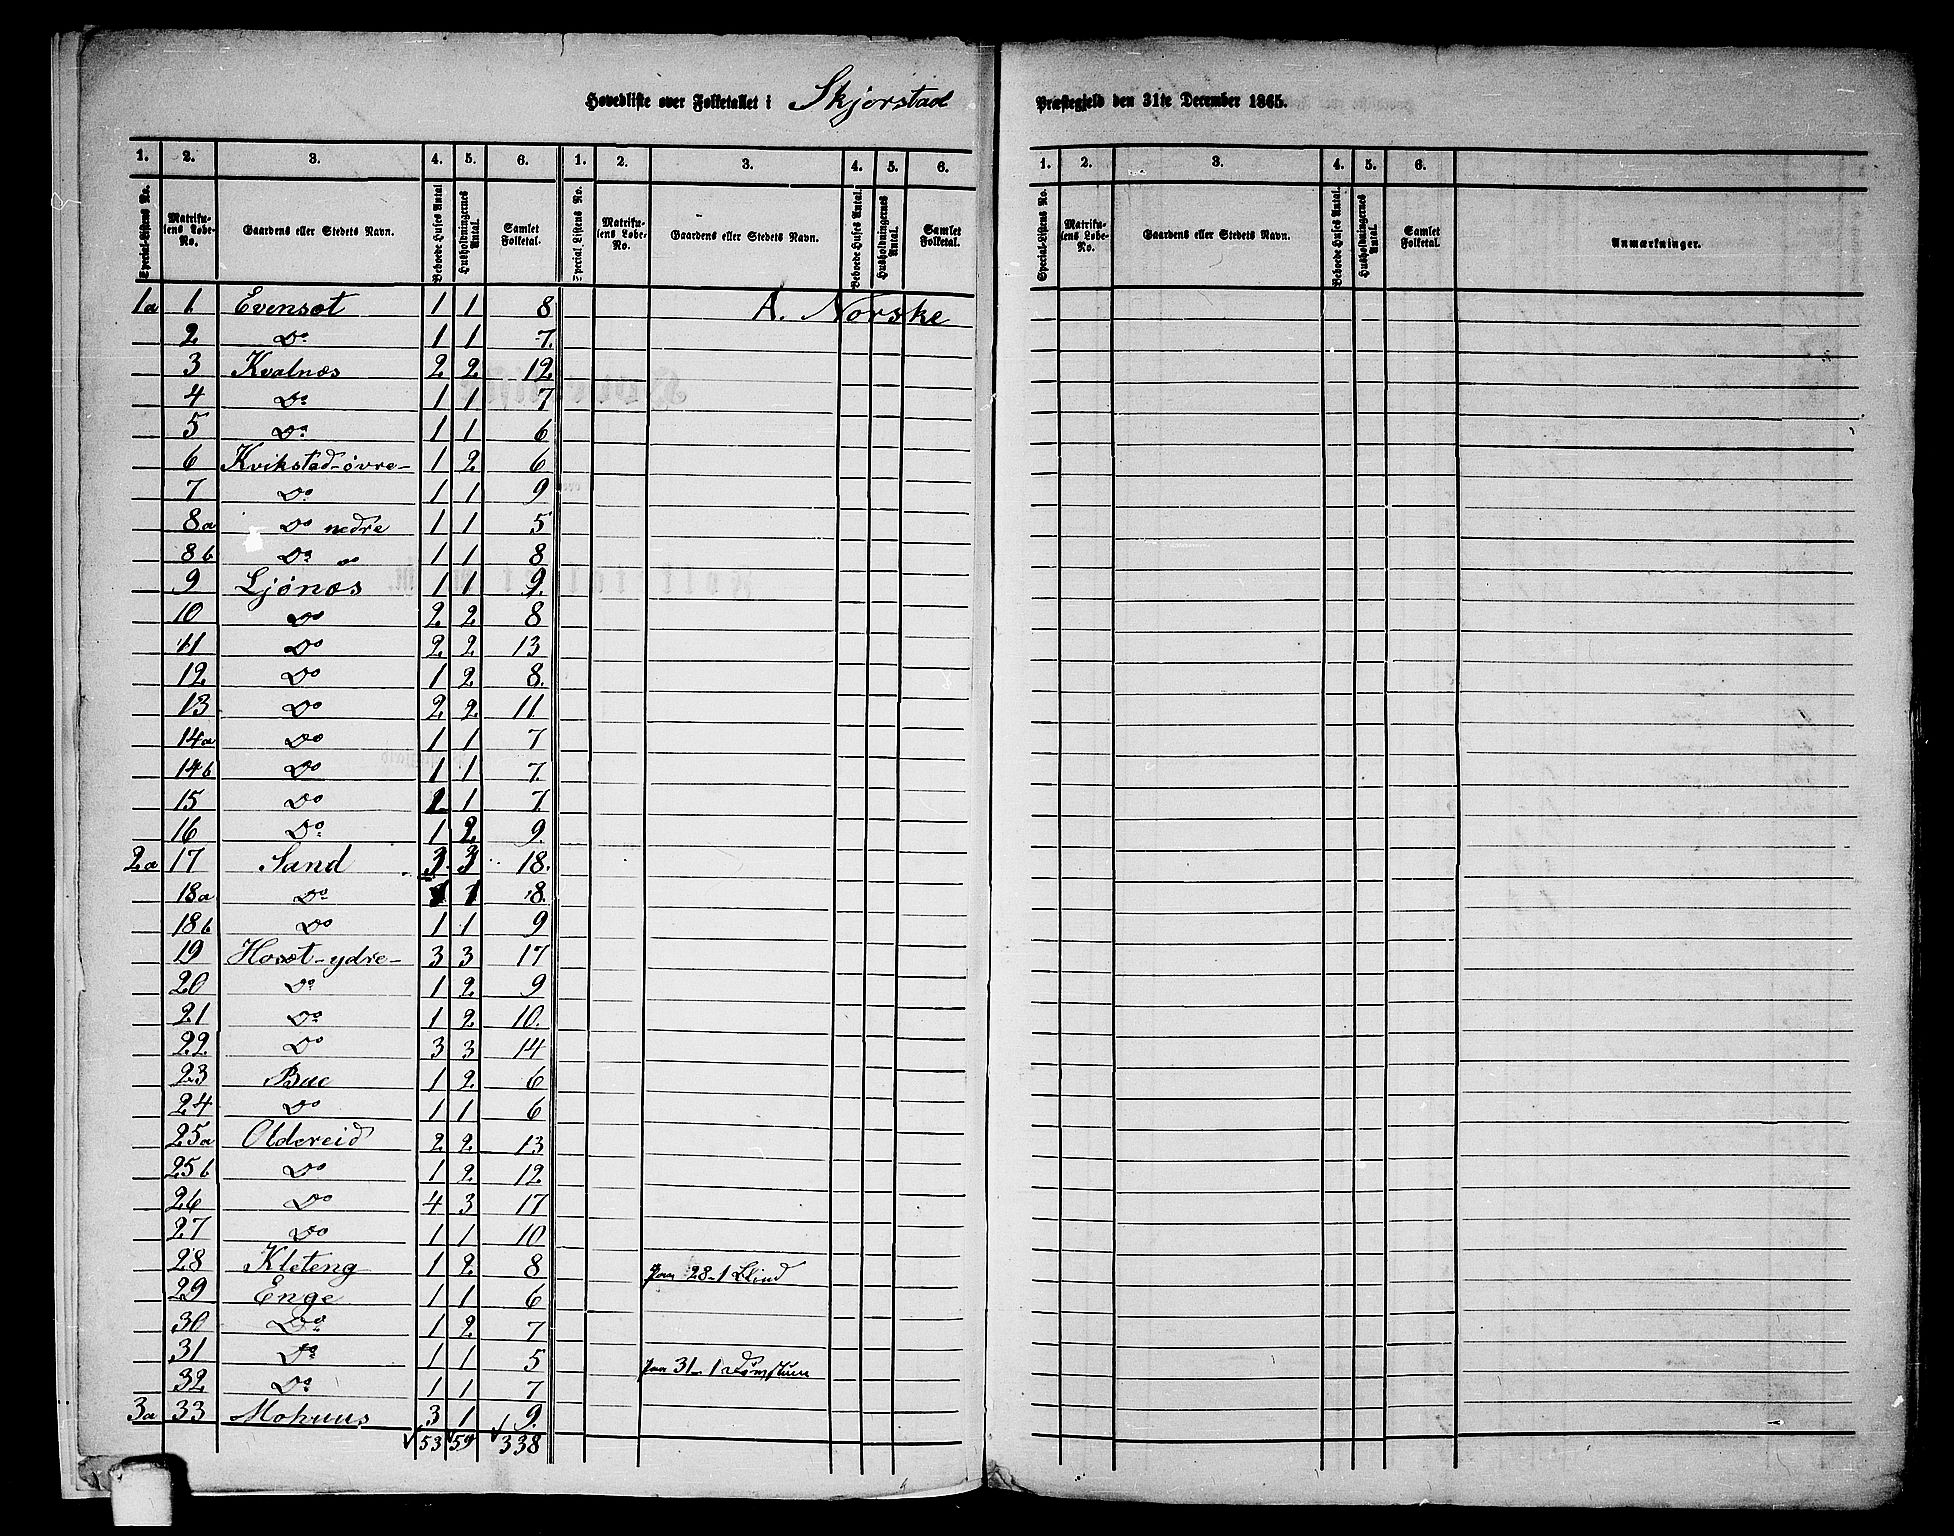 Hovedliste over Folketallet i Skjerstad Præstegjeld den 31te December 1865.
1. 2. 3. 4. 5. 6. 1. 2. 3. 4. 5. 6. 1. 2. 3. 4. 5. 6.
Special-Listens No. Matrikulens Løbe-No. Gaardens eller Stedets Navn. Beboede Huses Antal Husholdningernes Antal. Samlet Folketal. Special-Listens No. Matrikulens Løbe-No. Gaardens eller Stedets Navn. Beboede Huses Antal. Husholdningernes Antal. Samlet Folketal. Special-Listens No. Matrikulens Løbe-No. Gaardens eller Stedets Navn. Beboede Huses Antal. Husholdningernes Antal. Samlet Folketal. Anmærkninger.
1a 1 Evensæt 1 1 8 A. Norske
2 Do 1 1 7
3 Kvalnæs 2 2 12
4 Do 1 1 7
5 Do 1 1 6
6 Kvikstad-øvre- 1 2 6
7 Do 1 1 9
8a Do nedre 1 1 5
8b Do Do 1 1 8
9 Ljønæs 1 1 9
10 Do 2 2 8
11 Do 2 2 13
12 Do 1 2 8
13 Do 2 2 11
14a Do 1 1 7
14b Do 1 1 7
15 Do 2 1 7
16 Do 1 2 9
2a 17 Sand 3 3 18
18a Do 1 1 8
18b Do 1 1 9
19 Hosæt-ydre- 3 3 17
20 Do 1 2 9
21 Do 1 2 10
22 Do 3 3 14
23 Bue 1 2 6
24 Do 1 1 6
25a Oldereid 2 2 13
25b Do 1 2 12
26 Do 4 3 17
27 Do 1 1 10
28 Kleteng 1 2 8 Paa 28-1 Blind
29 Enge 1 1 6
30 Do 1 2 7
31 Do 1 1 5 Paa 31-1 Døvstum
32 Do 1 1 7
3a 33 Mohuus 3 1 9
53 59 338